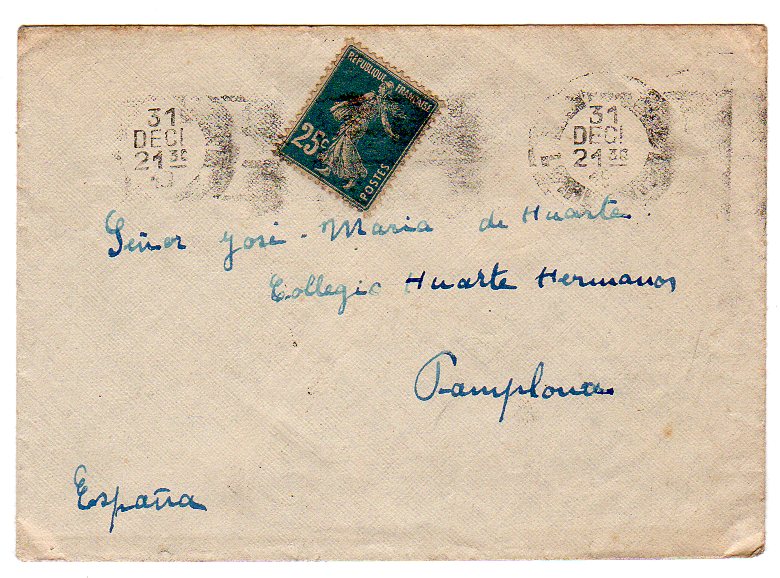 31
DECI
21 30
RÉPUBLIQUE FRANÇAISE
25c
POSTES
31
DECI
21 30
Señor José-Maria de Huarte
Collegio Huarte Hermanos
Pamplona
España